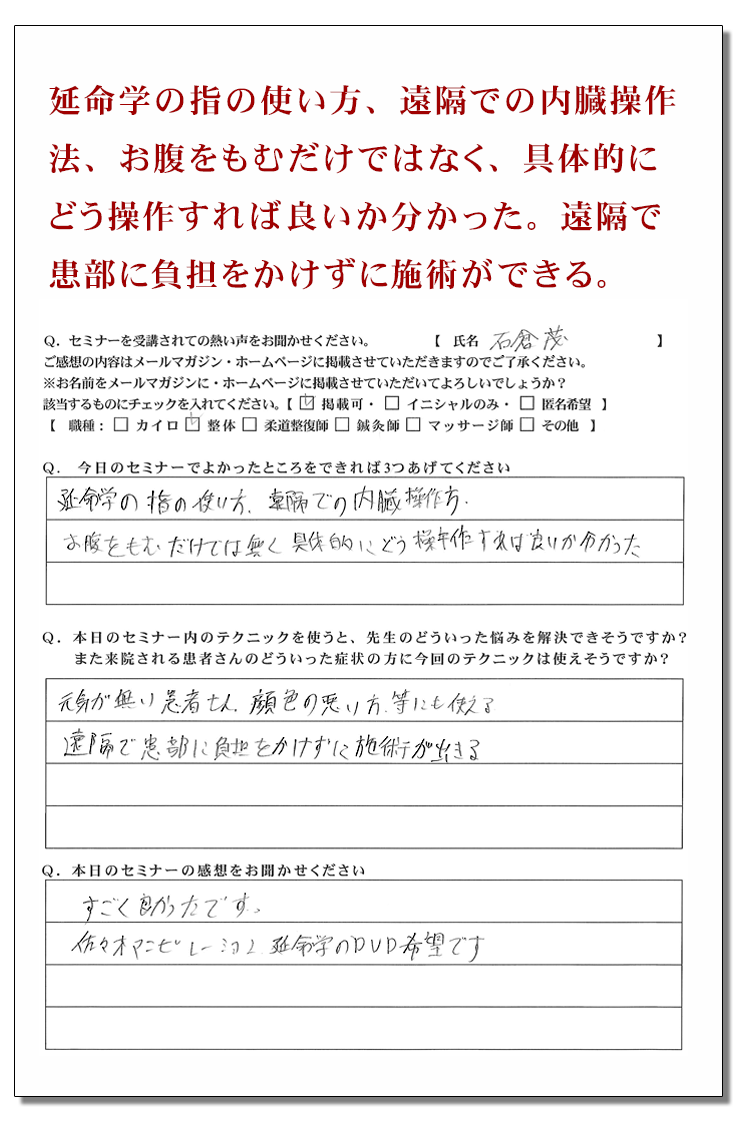 延命学の指の使い方、遠隔での内臓操作
法、お腹をもむだけではなく、具体的に
どう操作すれば良いか分かった。遠隔で
患部に負担をかけずに施術ができる。
Q．セミナーを受講されての熱い声をお聞かせください。 【 氏名 石倉 茂 】
ご感想の内容はメールマガジン・ホームページに掲載させていただきますのでご了承ください。
※お名前をメールマガジンに・ホームページに掲載させていただいてよろしいでしょうか？
該当するものにチェックを入れてください。【 ☑ 掲載可・ □ イニシャルのみ・ □ 匿名希望 】
【 職種： □ カイロ ☑ 整体 □ 柔道整復師 □ 鍼灸師 □ マッサージ師 □ その他 】
Q． 今日のセミナーでよかったところをできれば3つあげてください
延命学の指の使い方、遠隔での内臓操作方、
お腹をもむだけでは無く具体的にどう操作すれば良いか分かった
Q．本日のセミナー内のテクニックを使うと、先生のどういった悩みを解決できそうですか？
また来院される患者さんのどういった症状の方に今回のテクニックは使えそうですか？
元気が無い患者さん、顔色の悪い方、等にも使える
遠隔で患部に負担をかけずに施術が出きる
Q．本日のセミナーの感想をお聞かせください
すごく良かったです。
佐々木マニピレーション、延命学のDVD希望です